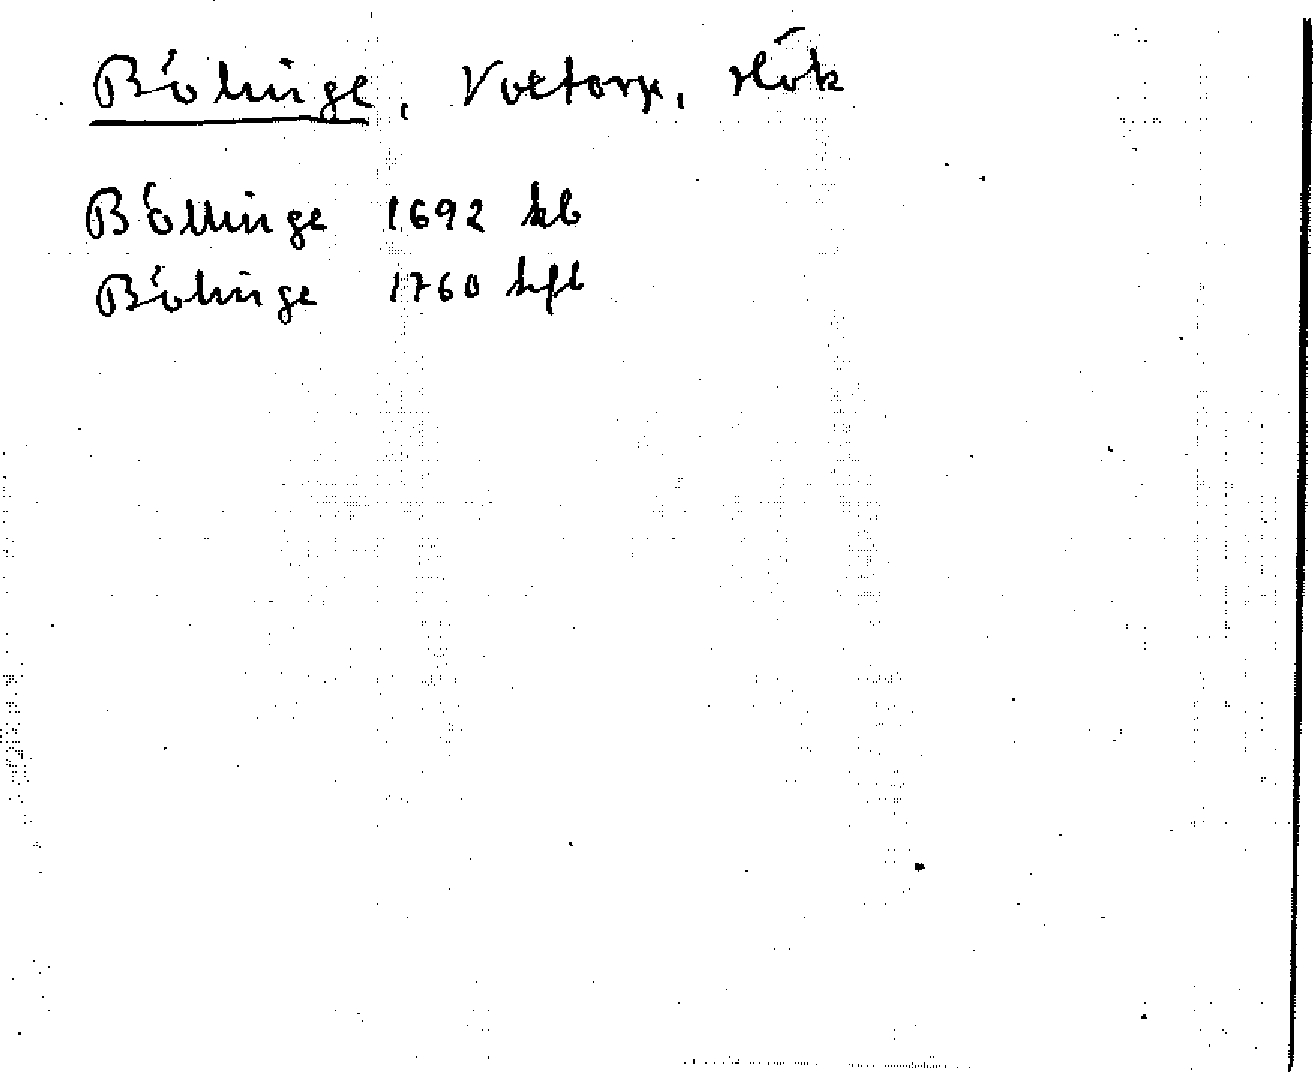 Bölinge, Voxtorp, Hök
Böllinge 1692 kb
Bölinge 1760 hfl